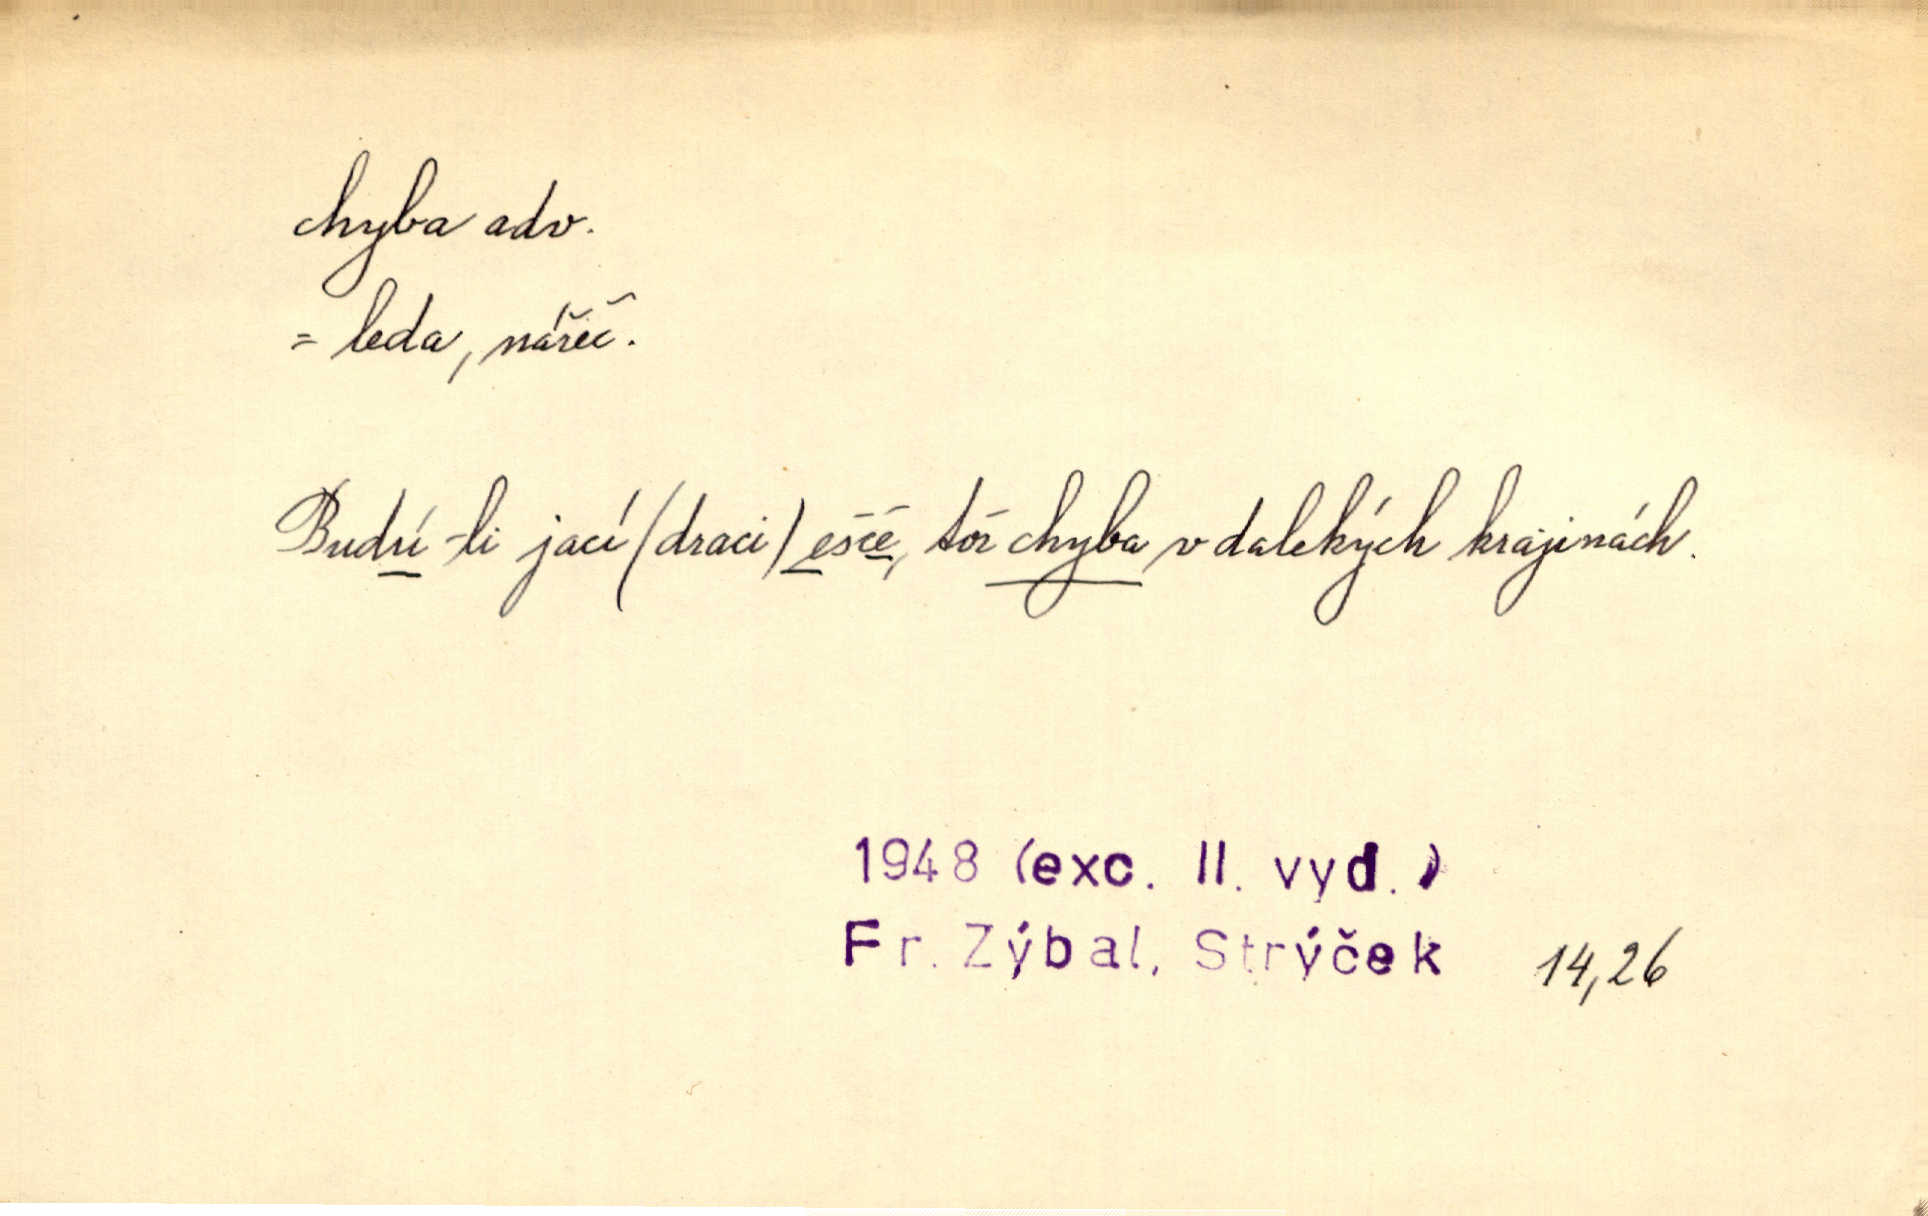 chyba adv.
= leda, nářeč.
Budú-li jací (draci) eščě, tož chyba v dalekých krajinách.
1948 (exc. II. vyd.)
Fr. Zýbal, Strýček 14,26